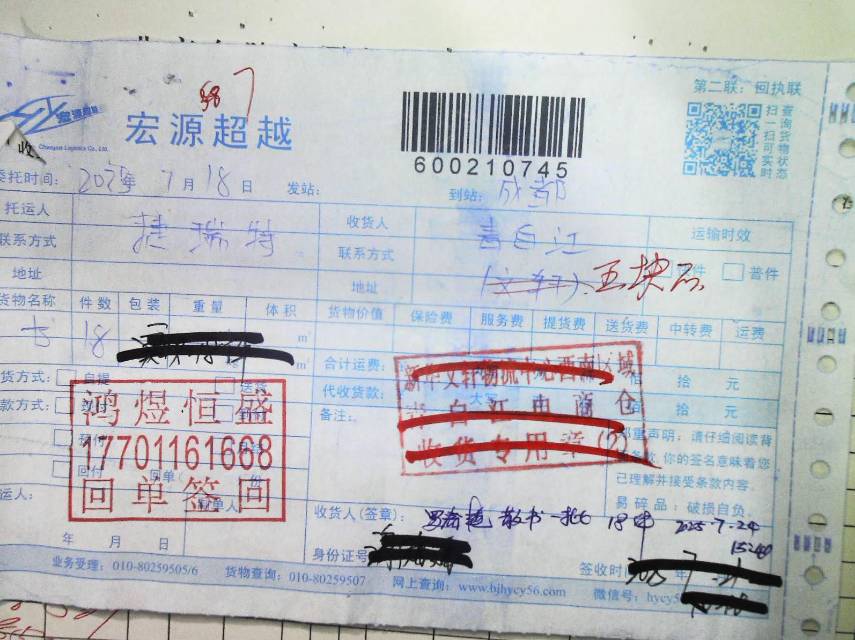 第二联：回执联
587
宏源超越
宏源超越
Chaoyue Logistics Co., Ltd.
600210745
扫一扫可实时
查询货物状态
收
委托时间：2025年7月18日 发站： 到站：成都
托运人 捷瑞特 收货人 青白江 运输时效
联系方式 联系方式
地址 地址 五块石 快件 普件
货物名称 件数 包装 重量 体积 货物价值 保险费 服务费 提货费 送货费 中转费 运费
书 18 m³
m³
货方式： 自提 送货 合计运费： 佰 拾 元
款方式： 代收货款： 拾 元
回付 回单 份 备注：
新华文轩物流中心西南区域
青白江电商仓
收货专用章
鸿煜恒盛
17701161668
回单签回
郑重声明：请仔细阅读背
条款，你的签名意味着您
已理解并接受条款内容。
易碎品：破损自负。
运人： 制单人 收货人(签章)： 散书一批 18件 2025-7-24
15:40
年 月 日 身份证号 签收时间
业务受理：010-80259505/6 货物查询：010-80259507 网上查询：www.bjhycy56.com 微信号：hycy5